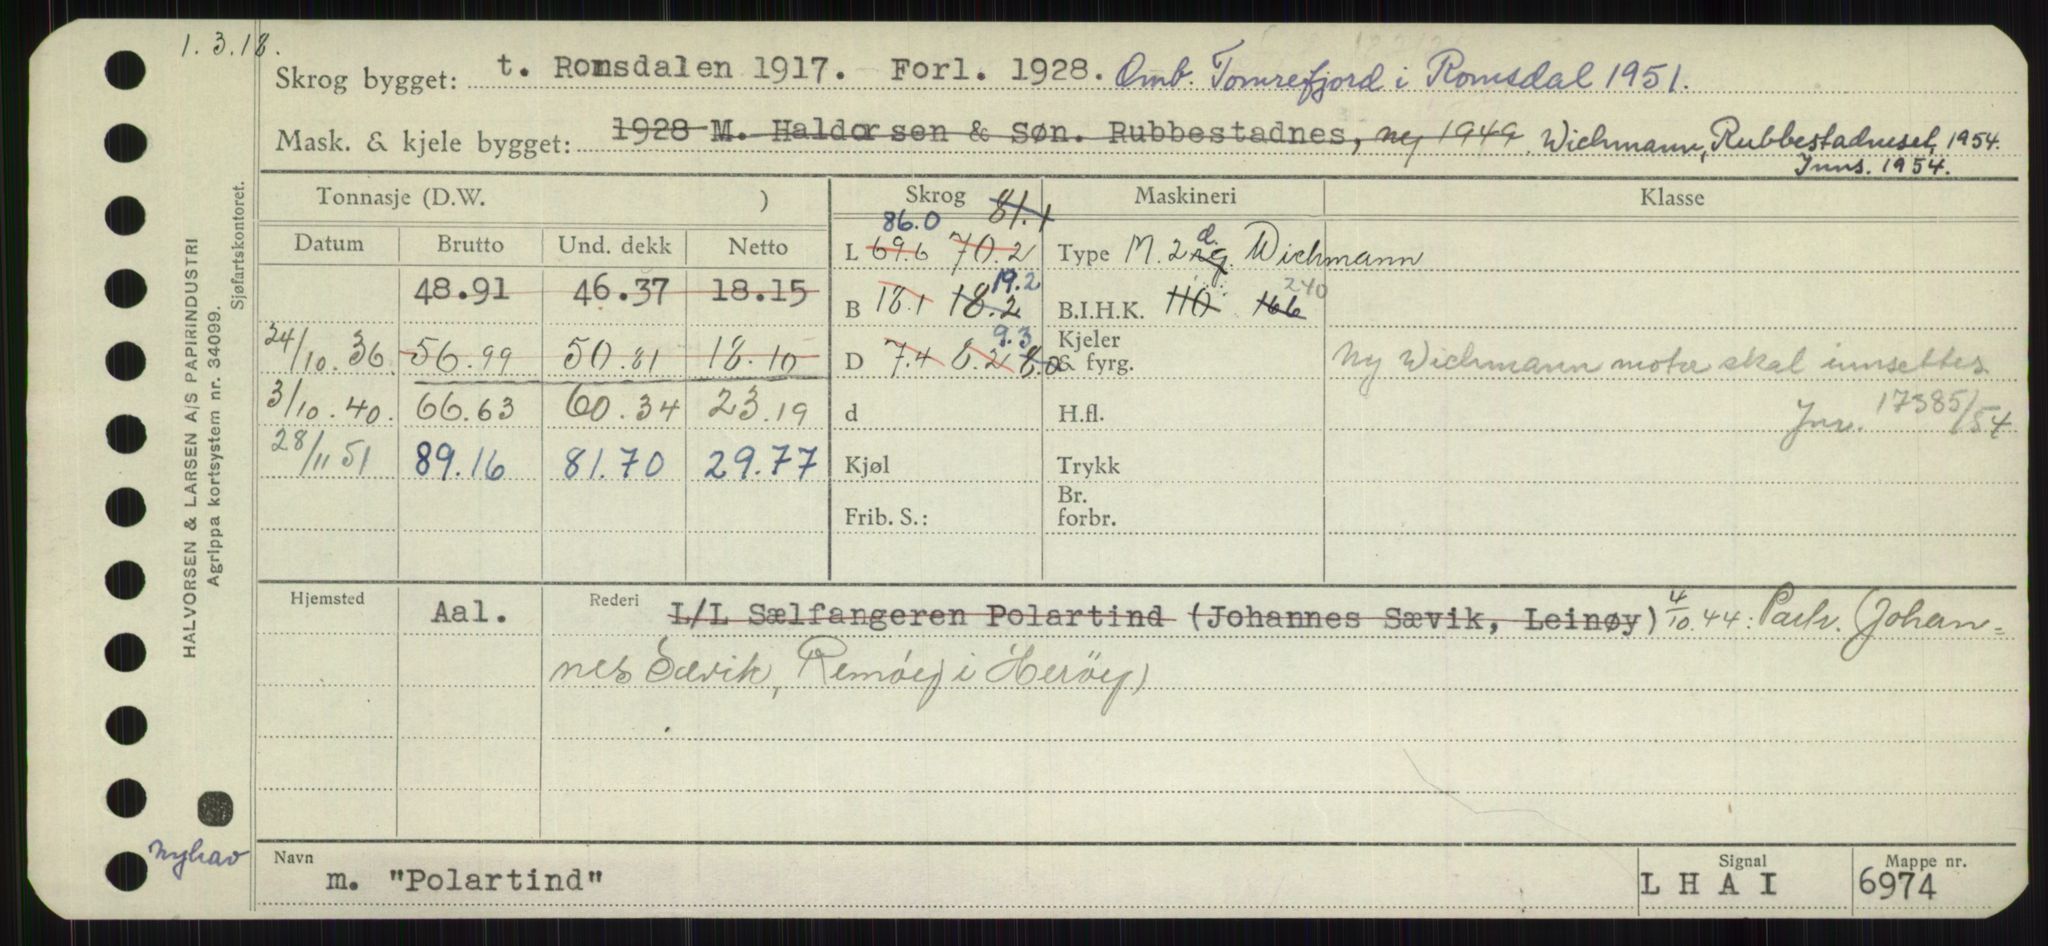 1.3.18.
Skrog bygget: t. Romsdalen 1917. Forl. 1928. Omb. Tomrefjord i Romsdal 1951.
Mask. & kjele bygget: 1928 M. Haldorsen & Søn. Rubbestadnes, ny 1949. Wichmann, Rubbestadneset, 1954.
Inns. 1954.
Tonnasje (D.W. ) Skrog 81.1 Maskineri Klasse
86.0
Datum Brutto Und. dekk Netto L 69.6 70.2 Type M. 2 d. Wichmann
48.91 46.37 18.15 B 18.1 18.2 19.2 B.I.H.K. 110 166 240
24/10.36. 56.99 50.81 18.10 D 7.4 8.2 8.0 9.3 Kjeler & fyrg. Ny Wichmann motor skal innsettes
3/10.40. 66.63 60.34 23.19 d H.fl. Jnr. 17385/54
28/11 51 89.16 81.70 29.77 Kjøl Trykk
Frib. S.: Br. forbr.
Hjemsted Aal. Rederi L/L Sælfangeren Polartind (Johannes Sævik, Leinøy) 4/10.44: Partr. (Johan=
nes Sævik, Remøy i Herøy)
Navn m. "Polartind" Signal L H A I Mappe nr. 6974
Nyhav
HALVORSEN & LARSEN A/S PAPIRINDUSTRI
Agrippa kortsystem nr. 34099.
Sjøfartskontoret.